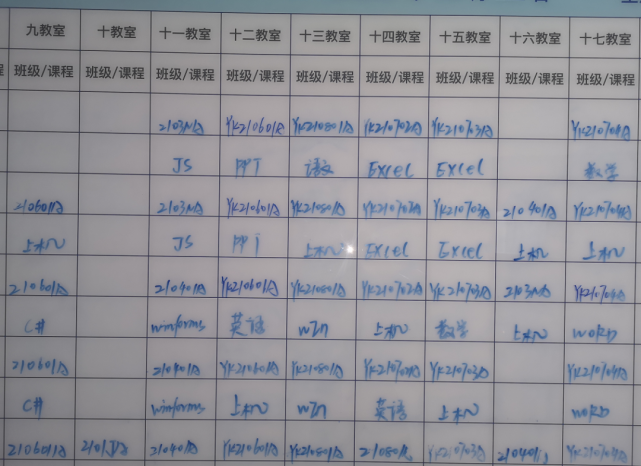 九教室 十教室 十一教室 十二教室 十三教室 十四教室 十五教室 十六教室 十七教室
班级/课程 班级/课程 班级/课程 班级/课程 班级/课程 班级/课程 班级/课程 班级/课程 班级/课程
2103MA YK210601A YK210801A YK210702A YK210703A YK210704A
JS PPT 语文 Excel Excel 数学
210601A 2103MA YK210601A YK210801A YK210702A YK210703A 210401A YK210704A
上机 JS PPT 上机 Excel Excel 上机 上机
210601A 210401A YK210601A YK210801A YK210702A YK210703A 2103MA YK210704A
C# winforms 英语 win 上机 数学 上机 word
210601A 210401A YK210601A YK210801A YK210702A YK210703A YK210704A
C# winforms 上机 win 英语 上机 word
210601A 210401A YK210601A YK210801A 210801A YK210703A YK210704A